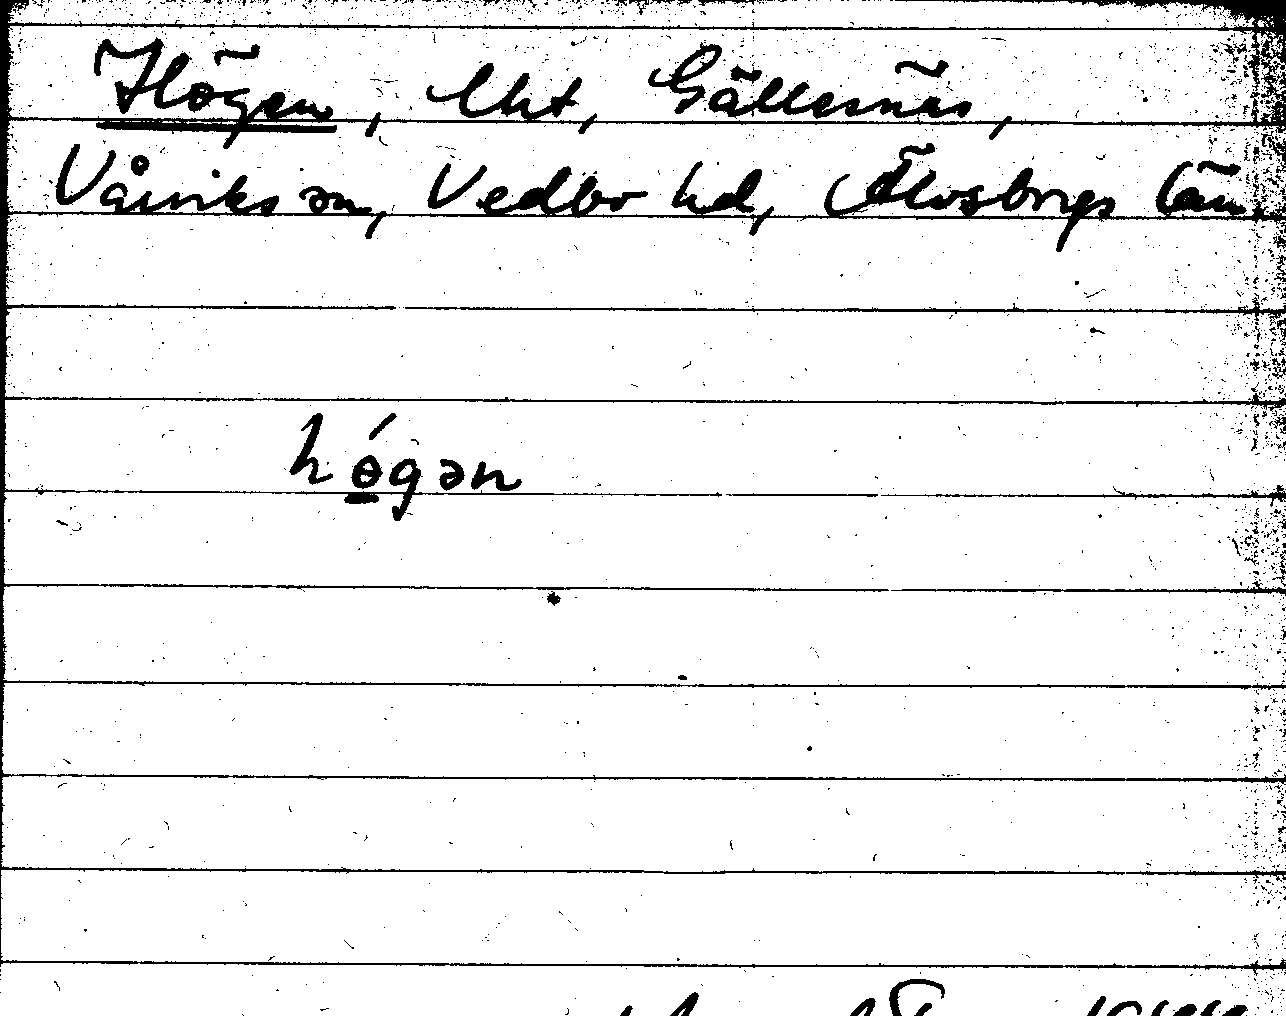 Högen, lht, Gällesnäs,
Vårviks sn, Vedbo hd, Älvsborgs län.
hǿ̱gən